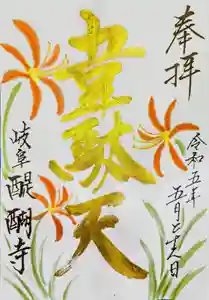 奉拝
令和五年
五月二十八日
韋駄天
岐阜 醍醐寺